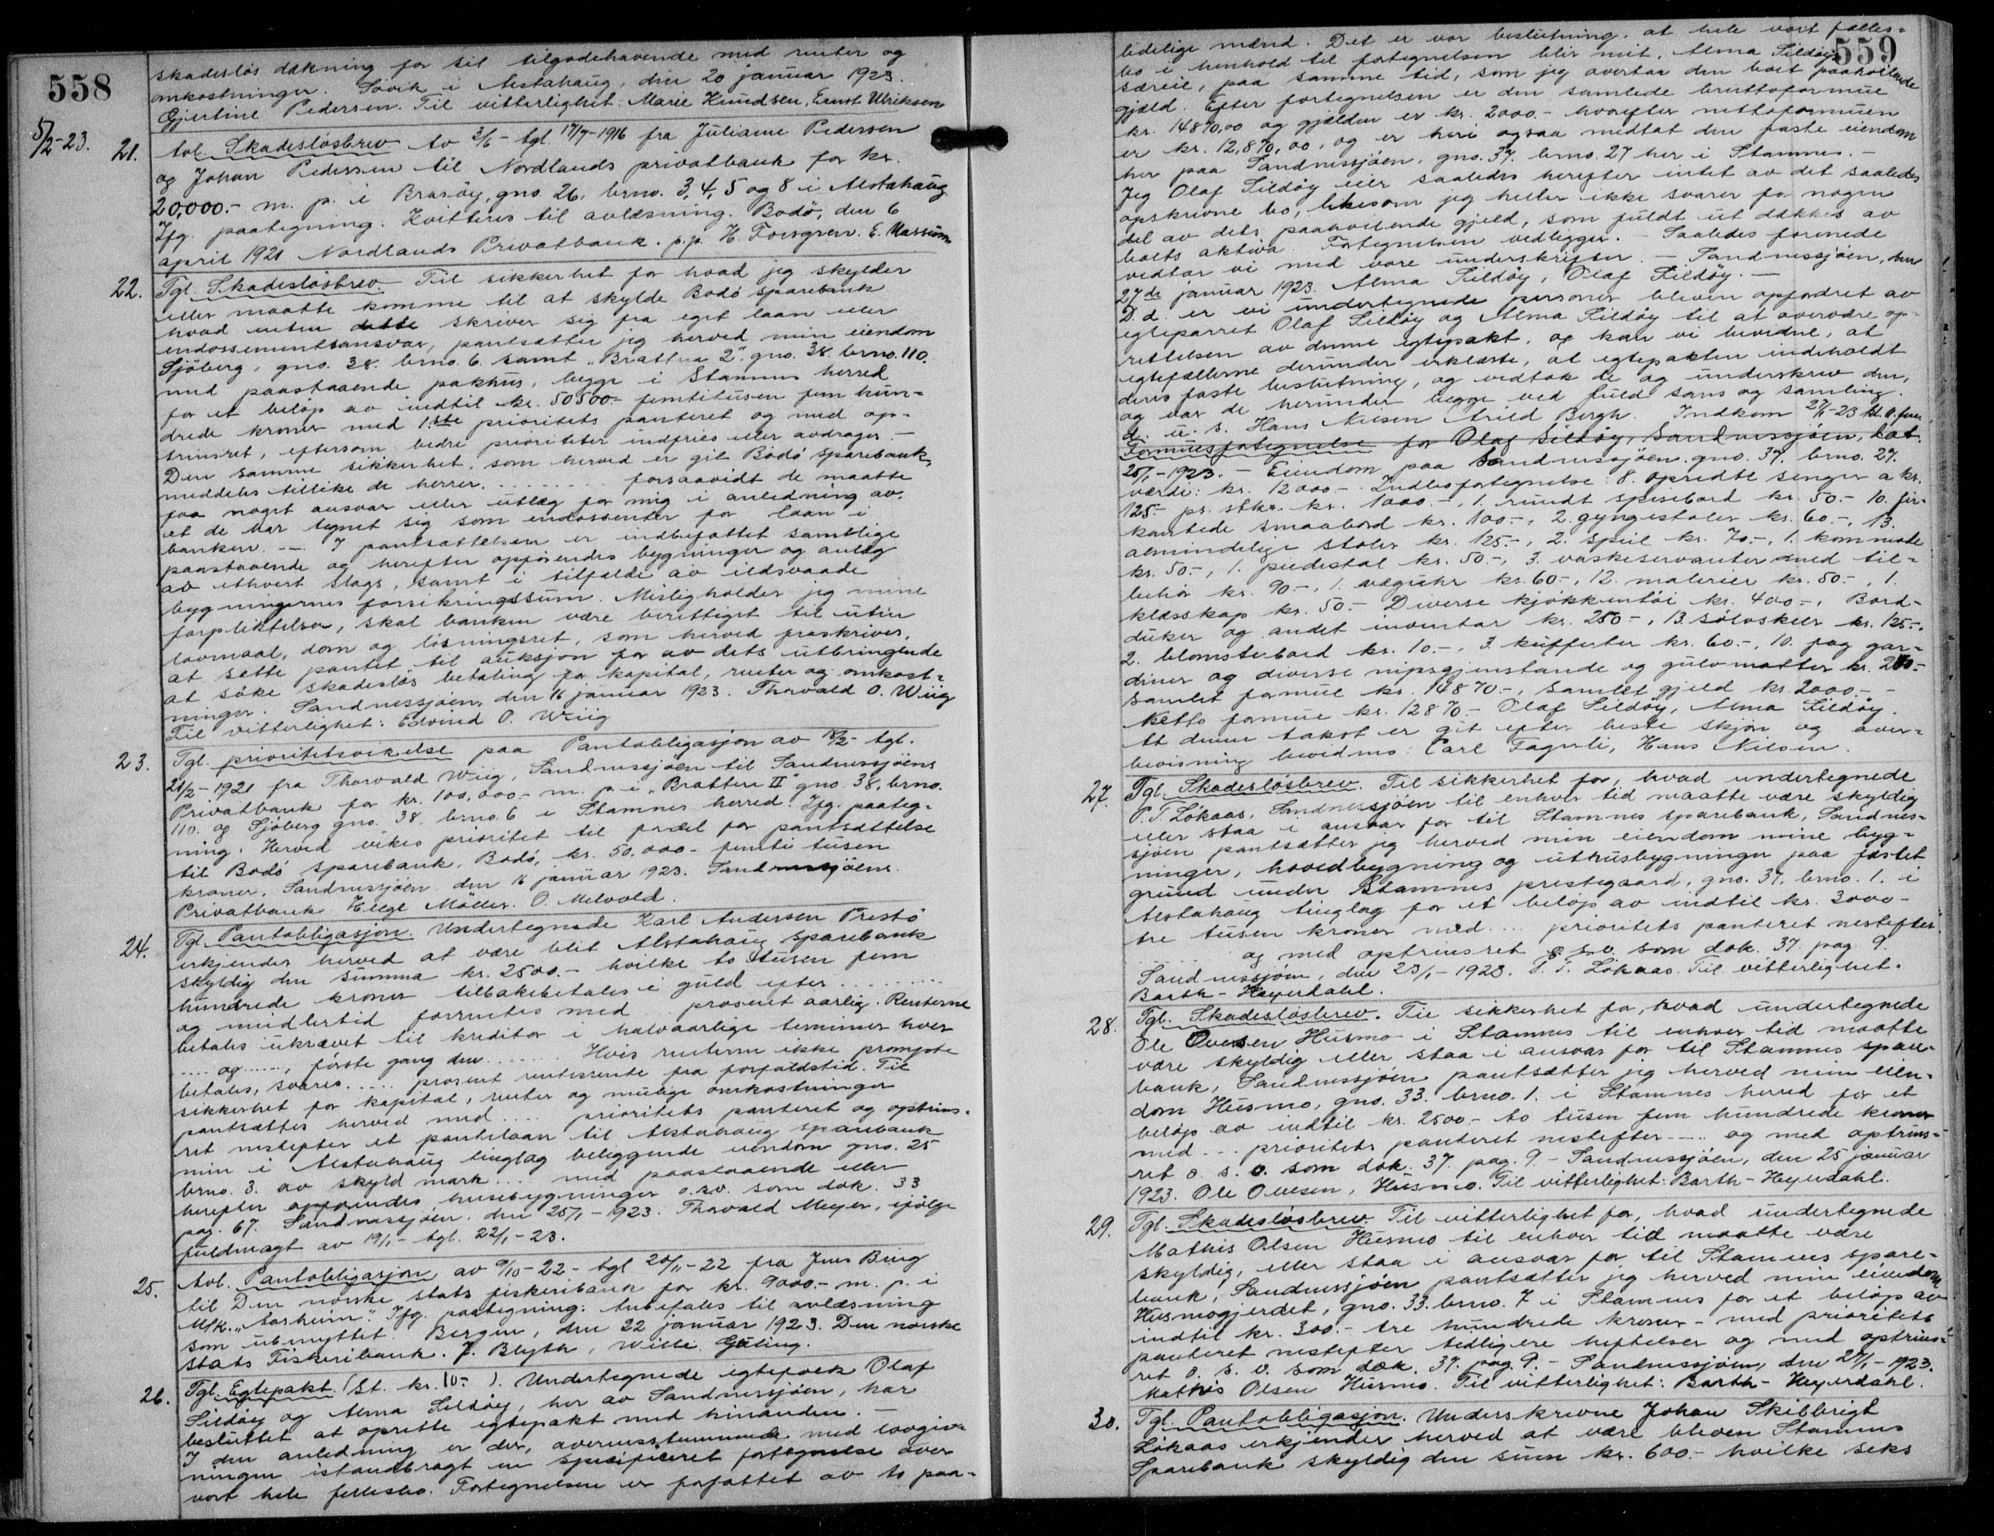 558
skadesløs dækning for sit tilgodehavende med renter og
omkostninger. Søvik i Alstahaug, den 20 januar 1923.
Gjertine Pedersen. Til vitterlighet: Marie Knudsen, Ernst Ulriksen
5/2-23. 21. Avl. Skadesløsbrev av 3/6 - tgl. 17/7-1916 fra Juliane Pedersen
og Johan Pedersen til Nordlands privatbank for kr.
20,000.- m. p. i Brasøy, gno 26, brno. 3, 4, 5 og 8 i Alstahaug
Ifg. paategning. Kvitteres til avlæsning. Bodø, den 6
april 1921 Nordlands Privatbank. p.p. H. Forsgren. E. Marsum
22. Tgl. Skadesløsbrev. Til sikkerhet for hvad jeg skylder
eller maatte komme til at skylde Bodø sparebank
hvad enten dette skriver sig fra eget laan eller
endossementsansvar, pantsætter jeg herved min eiendom
Sjøberg, gno. 38. brno. 6. samt „Brattua 2". gno. 38. brno. 110.
med paastaaende pakhus, begge i Stamnes herred
for et beløp av indtil kr. 50500.- femtitusen fem hun-
drede kroner med 1.ste prioritets panteret og med op-
trinsret, eftersom bedre prioriteter indfries eller avdrages. -
Den samme sikkerhet, som herved er git Bodø sparebank,
meddeles tillike de herrer ......... forsaavidt de maatte
faa noget ansvar eller utlæg for mig i anledning av
at de har tegnet sig som endossenter for laan i
banken. - I pantsættelsen er indbefattet samtlige
paastaaende og herefter opførendes bygninger og anlæg
av ethvert slags, samt i tilfælde av ildsvaade
bygningernes forsikringssum. Misligholder jeg mine
forpliktelser, skal banken være berettiget til uten
lovmaal, dom og løsningsret, som herved fraskrives,
at sætte pantet til auksjon for av dets utbringende
at søke skadesløs betaling for kapital, renter og omkost-
ninger. Sandnessjøen, den 16 januar 1923. Thorvald O. Wiig
Til vitterlighet: Edvind O. Wiig
23. Tgl. prioritetsvikelse paa Pantobligasjon av 18/2- tgl.
21/2-1921 fra Thorvald Wiig, Sandnessjøen til Sandnessjøens
Privatbank for kr. 100,000.- m. p. i „Brattua II" gno. 38, brno.
110. og Sjøberg gno. 38. brno. 6 i Stamnes herred. Ifg. paateg-
ning. Herved vikes prioritet til fordel for pantsættelse
til Bodø Sparebank, Bodø, kr. 50,000.- femti tusen
kroner. Sandnessjøen den 16 januar 1923. Sandnessjøens
Privatbank Helge Møller. O. Melvold.
24. Tgl. Pantobligasjon. Undertegnede Karl Andersen Prestø
erkjender herved at være blit Alstahaug sparebank
skyldig den summa kr. 2500.- hvilke to tusen fem
hundrede kroner tilbakebetales i guld efter .........
og imidlertid forrentes med .. prosent aarlig. Renterne
betales ukrævet til kreditor i halvaarlige terminer hver
.... og ...., første gang den ...... Hvis renterne ikke prompte
betales, svares ..... prosent rentesrente fra forfaldstid. Til
sikkerhet for kapital, renter og mulige omkostninger
pantsættes herved med .... prioritets panteret og optrins-
ret nestefter et pantelaan til Alstahaug sparebank
min i Alstahaug tinglag beliggende eiendom gno. 25
brno. 3. av skyld mark ... med paastaaende eller
herefter opførendes husebygninger o.s.v. som dok. 33
pag. 67. Sandnessjøen, den 25/1-1923. Thorvald Meyer, ifølge
fuldmagt av 19/1- tgl. 22/1-23.
25. Avl. Pantobligasjon av 9/10-22- tgl 20/11-22 fra Jens Buvg
til Den norske stats fiskeribank for kr. 9000.- m. p. i
M/k. „Aarheim". Ifg. paategning: Anbefales til avlæsning
som ubenyttet. Bergen, den 22 januar 1923. Den norske
Stats Fiskeribank. J. Blyth, Wilh. Gøling.
26. Tgl. Egtepakt. (St. kr. 10.- ). Undertegnede egtefolk Olaf
Sildøy og Alma Sildøy, her av Sandnessjøen, har
besluttet at oprette egtepakt med hinanden. -
I den anledning er der, overensstemmende med lovgiv-
ningen istandbragt en spesificeret fortegnelse over
vort hele fellesbo. Fortegnelsen er forfattet av to paa-
559
lidelige mænd. Det er vor beslutning, at hele vort fælles-
bo i henhold til fortegnelsen blir mit, Alma Sildøys
særeie, paa samme tid, som jeg overtar den boet paahvilende
gjæld. Efter fortegnelsen er den samlede bruttoformue
kr. 14870,00 og gjælden er kr. 2000.- hvorefter nettoformuen
er kr. 12,870,00, og er heri ogsaa medtat den faste eiendom
her paa Sandnessjøen, gno. 37. brno. 27 her i Stamnes. -
Jeg Olaf Sildøy eier saaledes herefter intet av det saaledes
opskrevne bo, likesom jeg heller ikke svarer for nogen
del av dets paahvilende gjeld, som fuldt ut dækkes av
boets aktiva. Fortegnelsen vedligger. - Saaledes forenede
vedtar vi med vore underskrifter. - Sandnessjøen, den
27de januar 1923. Alma Sildøy, Olaf Sildøy. -
D. d. er vi undertegnede personer bleven opfordret av
egteparret Olaf Sildøy og Alma Sildøy til at overvære op-
rettelsen av denne egtepakt, og kan vi bevidne, at
egtefællerne derunder erklærte, at egtepakten indeholdt
deres faste beslutning, og vedtok de og underskrev den,
og var de herunder begge ved fuld sans og samling.
d. u. s. Hans Nilsen Arild Bergh. Indkom 27/1-23 kl. 11. form.
Formuesfortegnelse for Olaf Sildøy, Sandnessjøen, dat.
25/1-1923. - Eiendom paa Sandnessjøen gno. 37. brno. 27.
værdi: kr. 12000.- Indbofortegnelse: 8. opredte senger a kr.
125.- pr. stk. kr. 1000.-, 1. rundt spisebord kr. 50.- 10. fir-
kantede smaabord kr. 100.-, 2. gyngestoler kr. 60.-, 13.
almindelige stoler kr. 125.-, 2. speil kr. 70.-, 1. kommode
kr. 50.-, 1. piedestal kr. 50.-, 3. vaskeservanter med til-
behør kr. 90.-, 1. vægur kr. 60.-, 12. malerier kr. 50.-, 1.
klæsskap kr. 50.- Diverse kjøkkentøi kr. 400.-, Bord-
duker og andet inventar kr. 250.-, 13 sølvskeer kr. 125.-,
2. blomsterbord kr. 10.-, 3. kufferter kr. 60.-, 10. fag gar-
diner og diverse nipsgjenstande og gulvmatter kr.
Samlet formue kr. 14870.-, samlet gjeld kr. 2000.- -
Netto formue kr. 12870.- Olaf Sildøy, Alma Sildøy.
At denne takst er git efter beste skjøn og over-
bevisning bevidnes: Carl Fagerli, Hans Nilsen.
27. Tgl. Skadesløsbrev. Til sikkerhet for, hvad undertegnede
P. T. Løkaas, Sandnessjøen til enhver tid maatte være skyldig
eller staa i ansvar for til Stamnes sparebank, Sandnes-
sjøen pantsætter jeg herved min eiendom mine byg-
ninger, hovedbygning og uthusbygninger paa fæstet
grund under Stamnes prestegaard, gno. 37. brno. 1. i
Alstahaug tinglag for et beløp av indtil kr. 3000.-
tre tusen kroner med .... prioritets panteret nestefter
...... og med optrinsret o. s. v. som dok. 37. pag 9.
Sandnessjøen, den 23/1-1923. P. T. Løkaas. Til vitterlighet.
Barth-Heyerdahl.
28. Tgl. Skadesløsbrev. Til sikkerhet for, hvad undertegnede
Ole Ovesen Husmo i Stamnes til enhver tid maatte
være skyldig eller staa i ansvar for til Stamnes spare-
bank, Sandnessjøen pantsætter jeg herved min eien-
dom Husmo, gno. 33. brno. 1. i Stamnes herred for et
beløp av indtil kr. 2500.- to tusen fem hundrede kroner
med ... prioritets panteret nestefter .... og med optrins-
ret o. s. v. som dok. 37. pag. 9. - Sandnessjøen, den 25 januar
1923. Ole Ovesen, Husmo. Til vitterlighet: Barth-Heyerdahl.
29. Tgl. Skadesløsbrev. Til vitterlighet for, hvad undertegnede
Mathis Olsen Husmo til enhver tid maatte være
skyldig, eller staa i ansvar for til Stamnes spare-
bank, Sandnessjøen pantsætter jeg herved min eiendom
Husmogjerdet, gno. 33. brno. 7 i Stamnes for et beløp av
indtil kr. 300.- tre hundrede kroner - med prioritets
panteret nestefter tidligere heftelser og med optrins-
ret o. s. v. som dok. 37. pag. 9. - Sandnessjøen, den 27/1-1923.
Mathis Olsen Husmo. Til vitterlighet: Barth-Heyerdahl.
30. Tgl. Pantobligasjon. Underskrevne Johan Skilbrigt
Løkaas erkjender herved at være bleven Stamnes
Sparebank skyldig den sum kr. 600.- hvilke seks